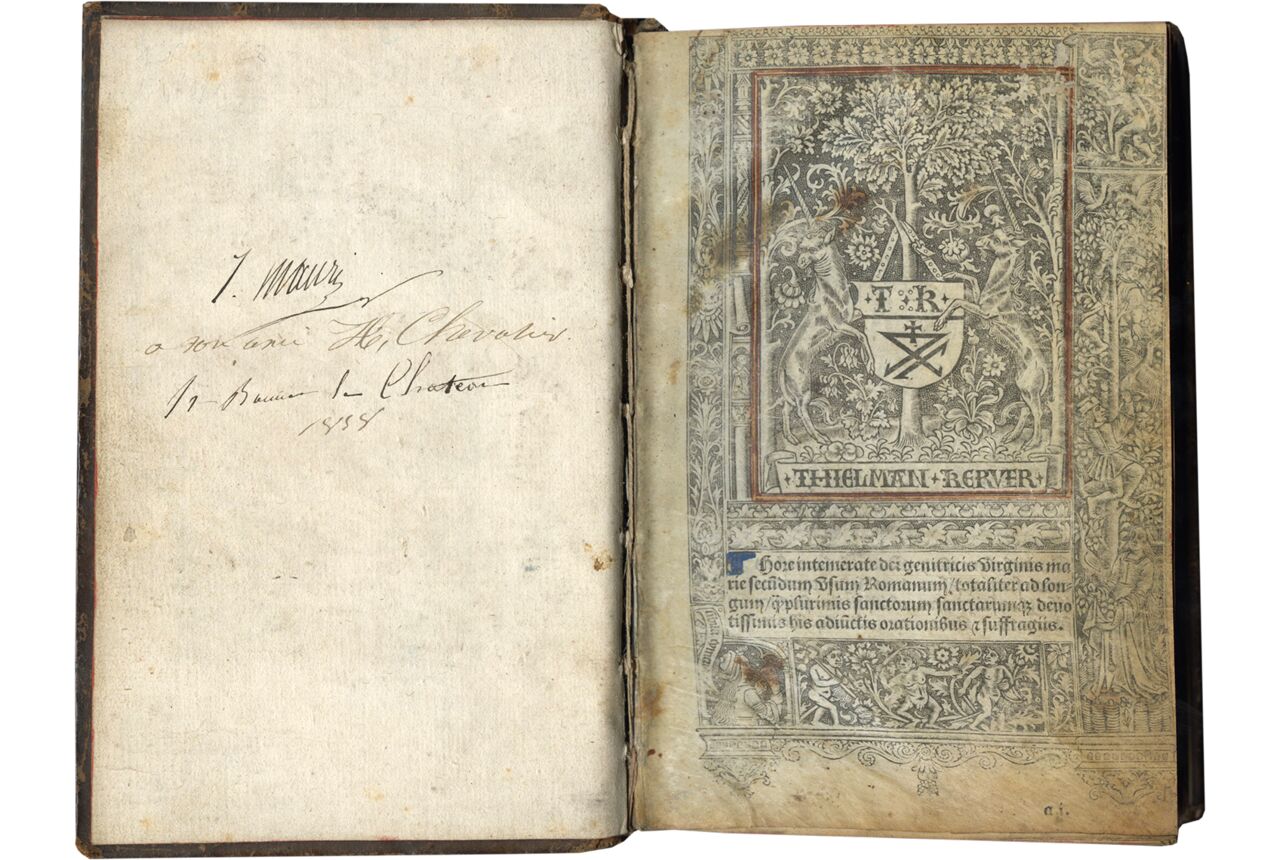 J. Mauri
a son ami H, Chevalier.
Chateau
1838
T R
THIELMAN KERVER
Hore intemerate dei genitricis Virginis ma
rie secūdum Vsum Romanum / totaliter ad lon-
gum / q̄ȝ plurimis sanctorum sanctarumqꝫ deuo
tissimis his adiūctis orationibus ⁊ suffragiis.
a j.